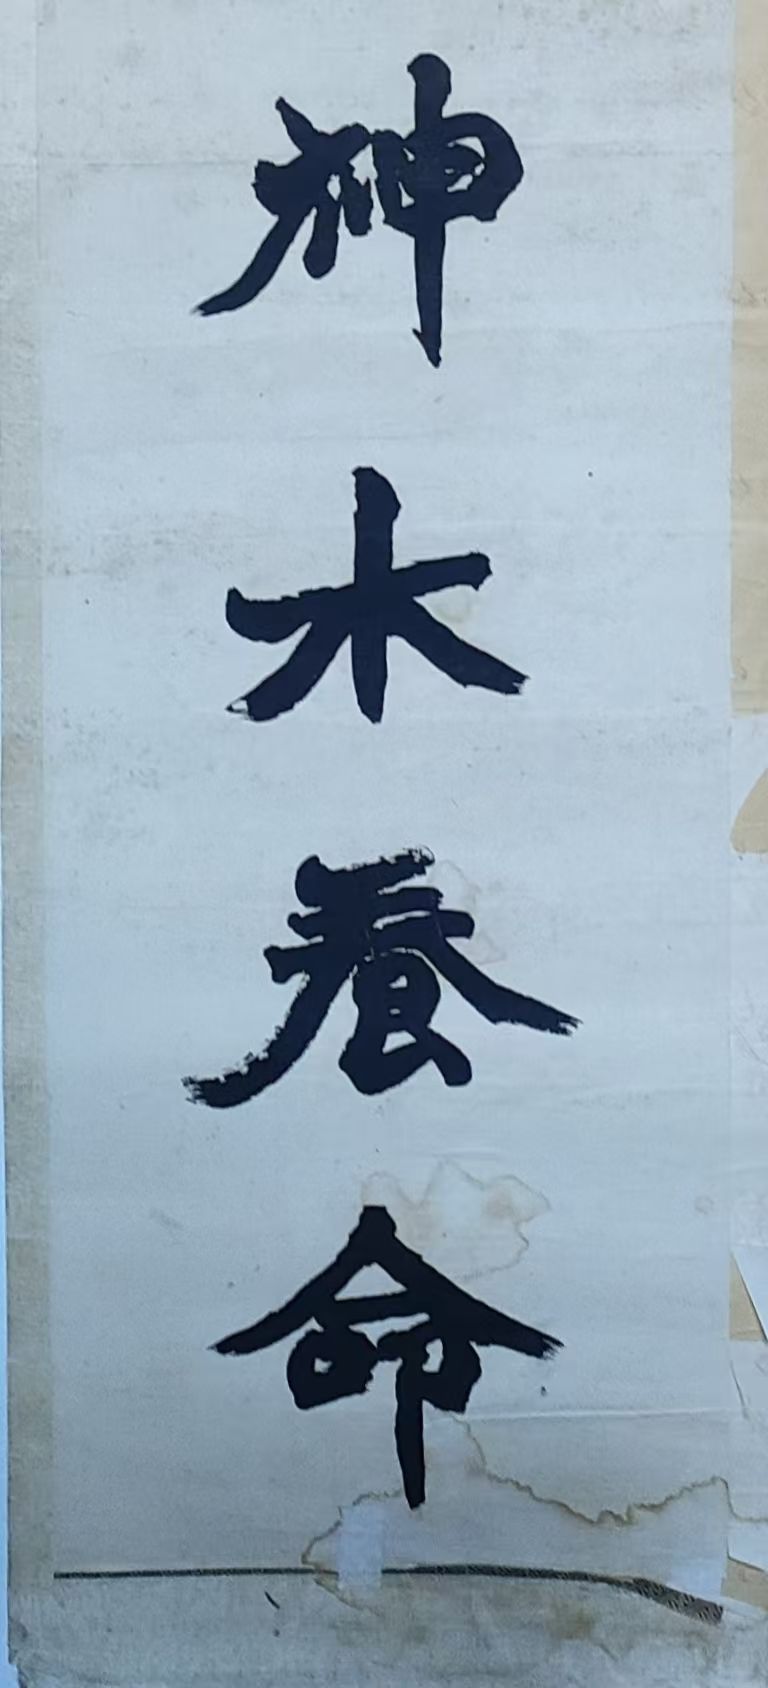 神木養命